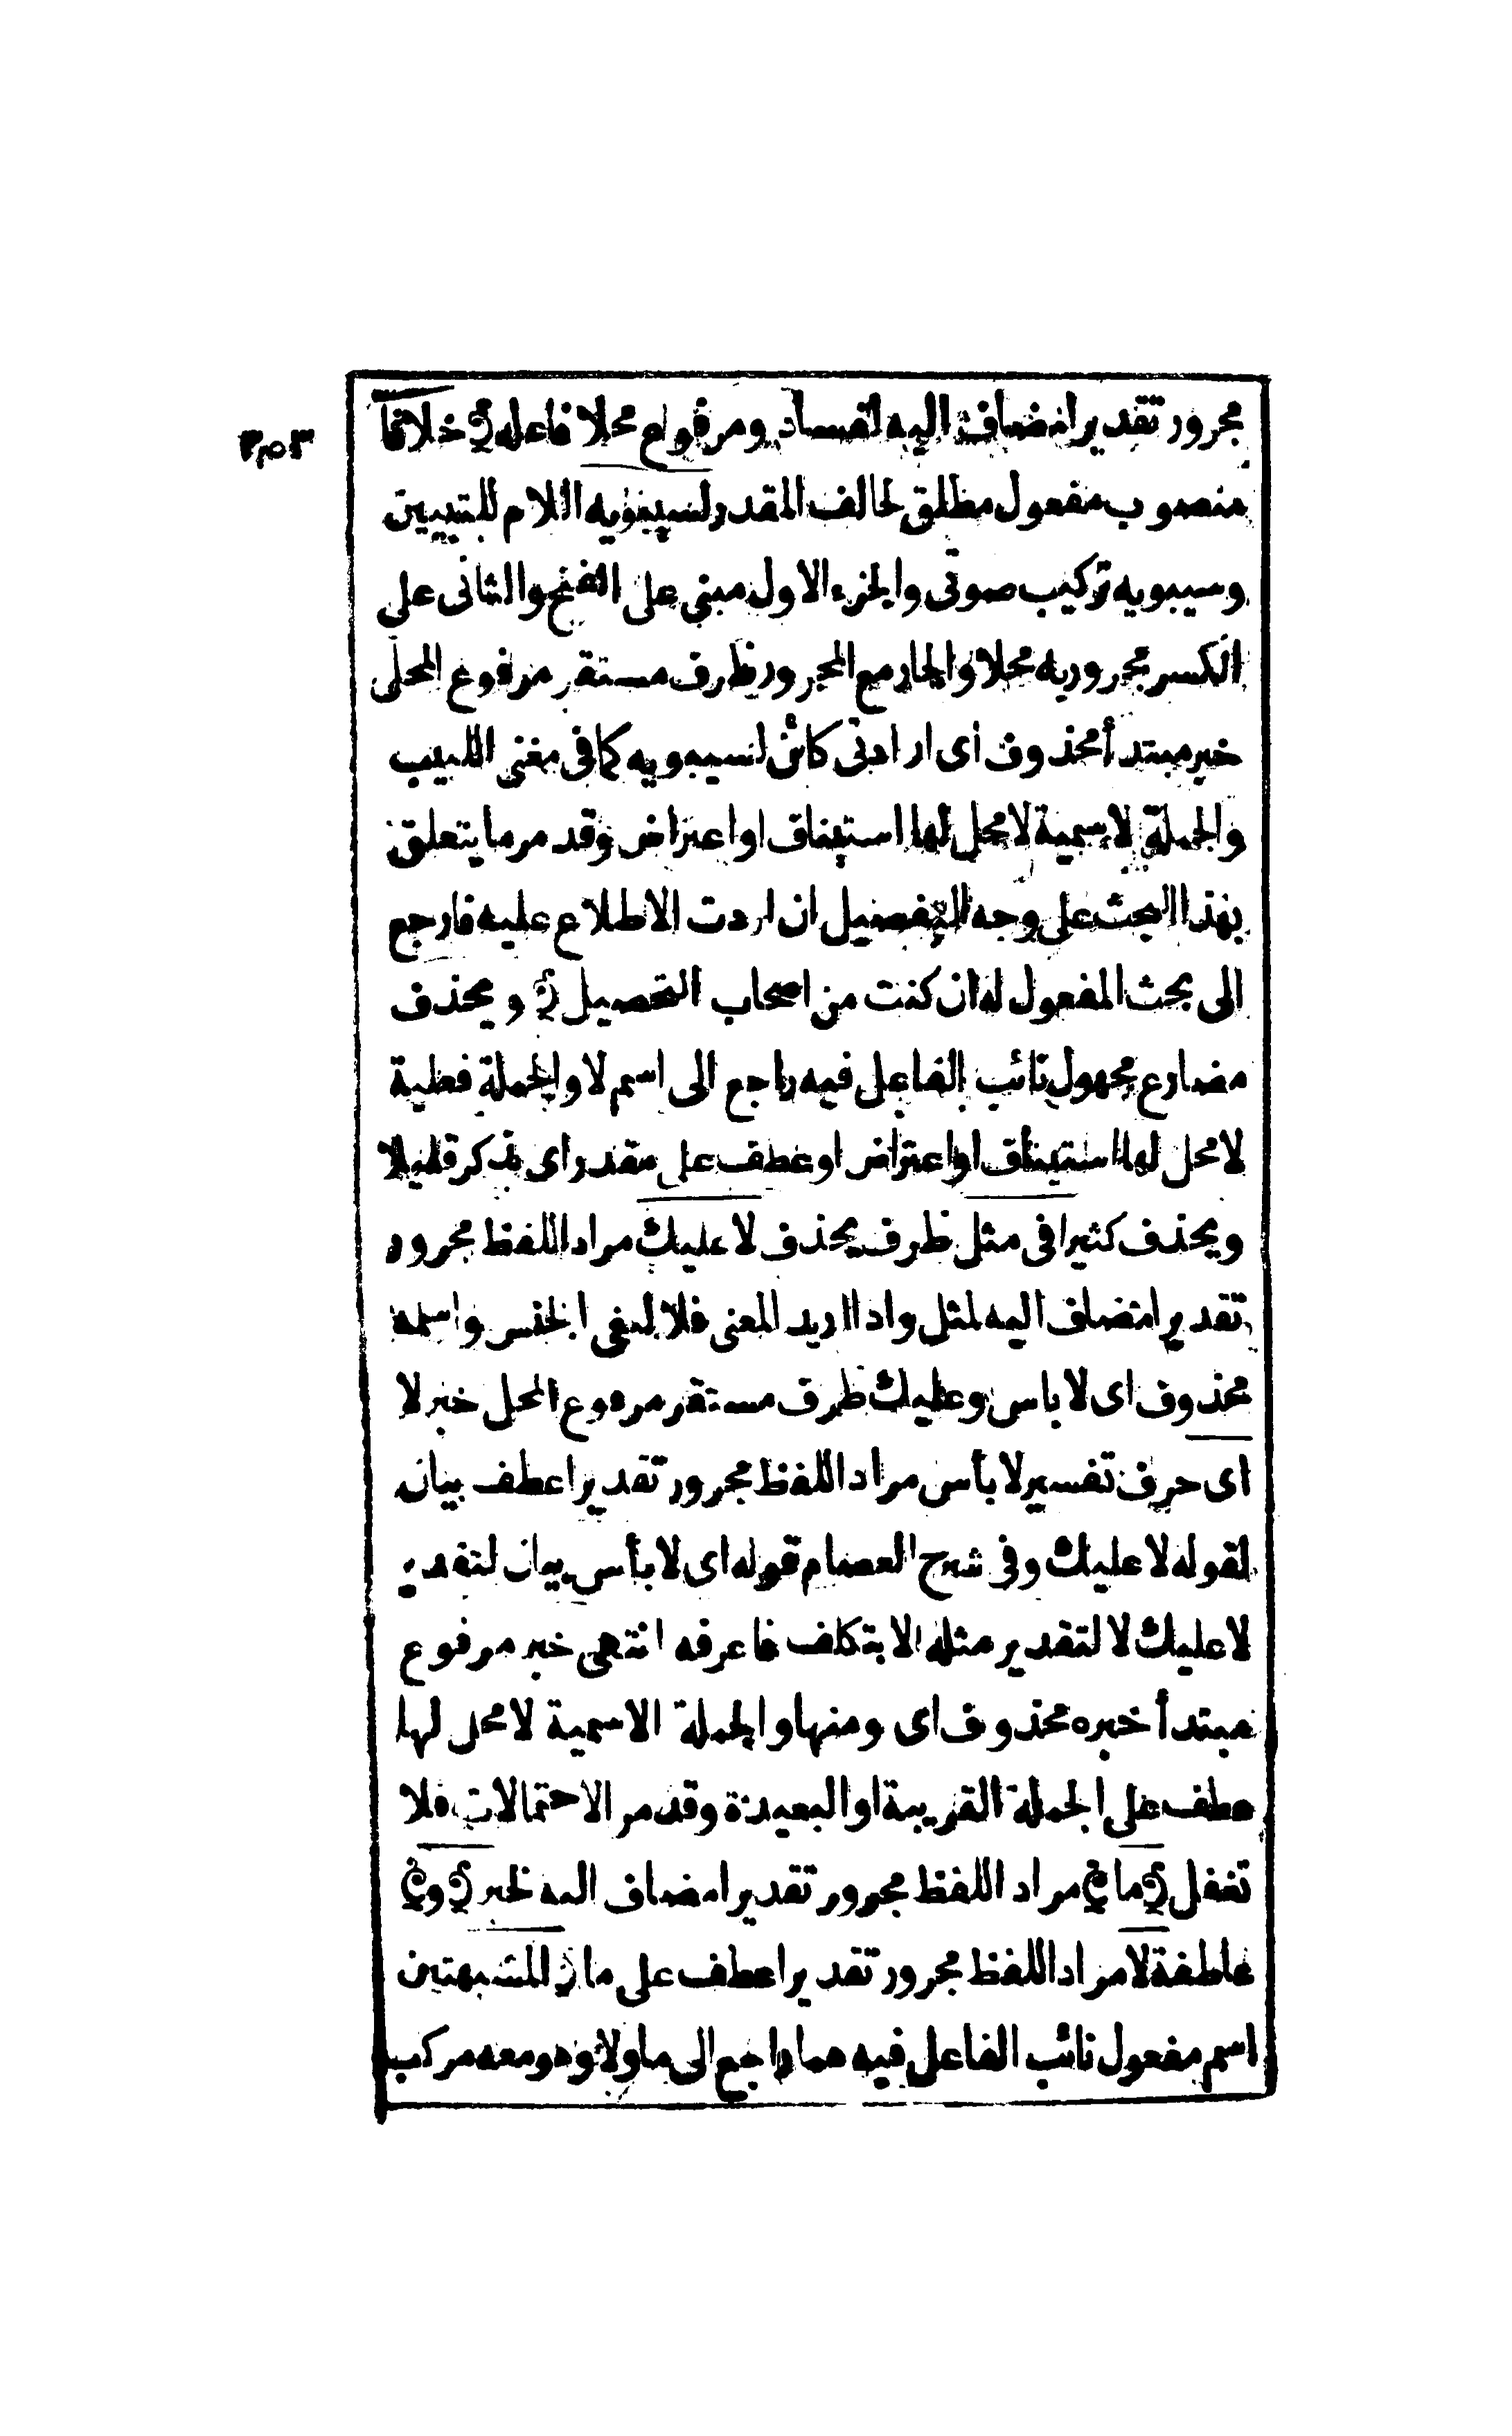 مجرور تقديرا مضاف اليه لفساد ومرفوع محلا فاعله ﴿ خلافا
منصوب مفعول مطلق لخالف المقدر لسيبويه اللام للتبيين
وسيبويه تركيب صوتى والجزء الاول مبنى على الفتح والثانى على
الكسر مجرور به محلا والجار مع المجرور ظرف مستقر مرفوع المحل
خبر مبتدأ محذوف اى ارادتى كائن لسيبويه كما فى مغنى اللبيب
والجملة الاسمية لا محل لها استيناف او اعتراض وقد مر ما يتعلق
بهذا البحث على وجه التفصيل ان اردت الاطلاع عليه فارجع
الى بحث المفعول له ان كنت من اصحاب التحصيل ﴿ ويحذف
مضارع مجهول نائب الفاعل فيه راجع الى اسم لا والجملة فعلية
لا محل لها استيناف او اعتراض او عطف على مقدر اى يذكر قليلا
ويحذف كثيرا فى مثل ظرف يحذف لا عليك مراد اللفظ مجرور
تقديرا مضاف اليه لمثل واذا اريد المعنى فلا لنفى الجنس واسمه
محذوف اى لا باس وعليك ظرف مستقر مرفوع المحل خبر لا
اى حرف تفسير لا بأس مراد اللفظ مجرور تقديرا عطف بيان
لقوله لا عليك وفى شرح العصام قوله اى لا بأس بيان لتقدير
لا عليك لا لتقدير مثله الا بتكلف فاعرفه انتهى خبر مرفوع
مبتدأ خبره محذوف اى ومنها والجملة الاسمية لا محل لها
عطف على الجملة القريبة او البعيدة وقد مر الاحتمالات فلا
تغفل ﴿ ما ﴾ مراد اللفظ مجرور تقديرا مضاف اليه لخبر ﴿ و ﴾
عاطفة لا مراد اللفظ مجرور تقديرا عطف على ما ﴿ المشبهتين
اسم مفعول نائب الفاعل فيه هما راجع الى ما ولا وهو معه مركب